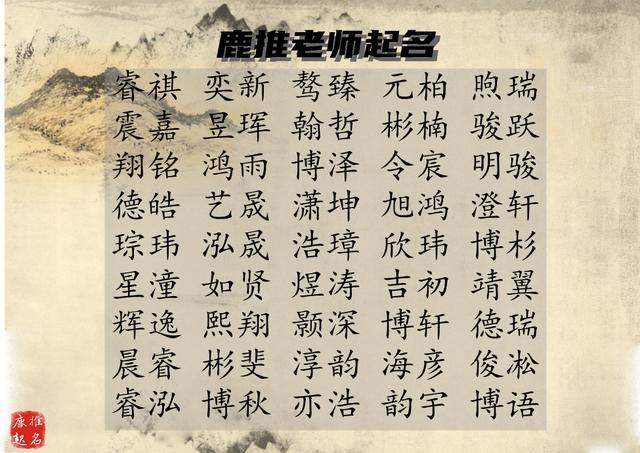 鹿推老师起名
睿祺 奕新 骜臻 元柏 煦瑞
震嘉 昱珲 翰哲 彬楠 骏跃
翔铭 鸿雨 博泽 令宸 明骏
德皓 艺晟 潇坤 旭鸿 澄轩
琮玮 泓晟 浩璋 欣玮 博杉
星潼 如贤 煜涛 吉初 靖翼
辉逸 熙翔 颢深 博轩 德瑞
晨睿 彬斐 淳韵 海彦 俊凇
睿泓 博秋 亦浩 韵宇 博语
康推
起名